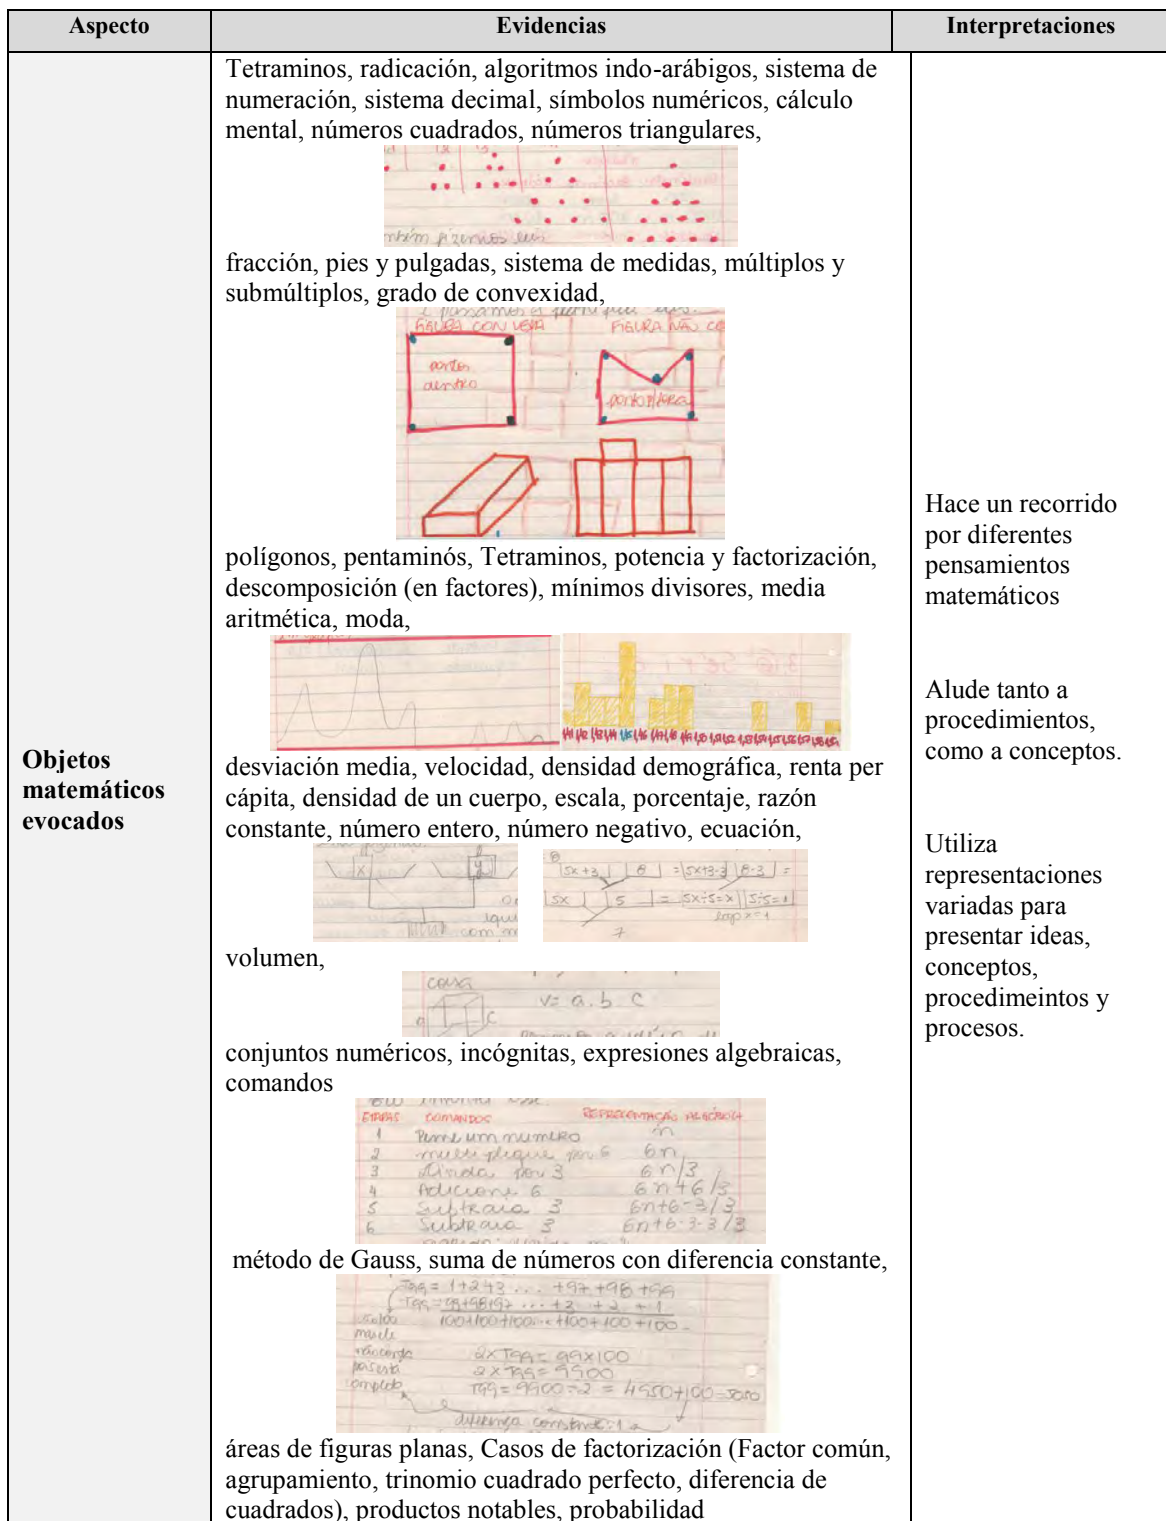 Aspecto
Evidencias
Interpretaciones
Objetos
matemáticos
evocados
Tetraminos, radicación, algoritmos indo-arábigos, sistema de
numeración, sistema decimal, símbolos numéricos, cálculo
mental, números cuadrados, números triangulares,
fracción, pies y pulgadas, sistema de medidas, múltiplos y
submúltiplos, grado de convexidad,
FIGURA CONVEXA
FIGURA NÃO CO
pontos
dentro
polígonos, pentaminós, Tetraminos, potencia y factorización,
descomposición (en factores), mínimos divisores, media
aritmética, moda,
desviación media, velocidad, densidad demográfica, renta per
cápita, densidad de un cuerpo, escala, porcentaje, razón
constante, número entero, número negativo, ecuación,
x
y
5x+3 8 = 5x+3-3 8-3 =
5x 5 = 5x÷5=x 5÷5=1
logo x=1
volumen,
caixa
V= a.b.c
a
c
conjuntos numéricos, incógnitas, expresiones algebraicas,
comandos
ETAPAS COMANDOS REPRESENTAÇÃO ALGÉBRICA
1 Pense um numero n
2 multiplique por 6 6n
3 Divida por 3 6n/3
4 Adicione 6 6n+6/3
5 Subtraia 3 6n+6-3/3
6 Subtraia 3 6n+6-3-3/3
método de Gauss, suma de números con diferencia constante,
T99 = 1+2+3 ... +97 +98 +99
T99 = 99+98+97 ... +3 +2 +1
100+100+100... +100+100+100
2xT99 = 99x100
2xT99 = 9900
T99 = 9900÷2 = 4950+100=5050
diferença constante: 1
áreas de figuras planas, Casos de factorización (Factor común,
agrupamiento, trinomio cuadrado perfecto, diferencia de
cuadrados), productos notables, probabilidad
Hace un recorrido
por diferentes
pensamientos
matemáticos
Alude tanto a
procedimientos,
como a conceptos.
Utiliza
representaciones
variadas para
presentar ideas,
conceptos,
procedimeintos y
procesos.